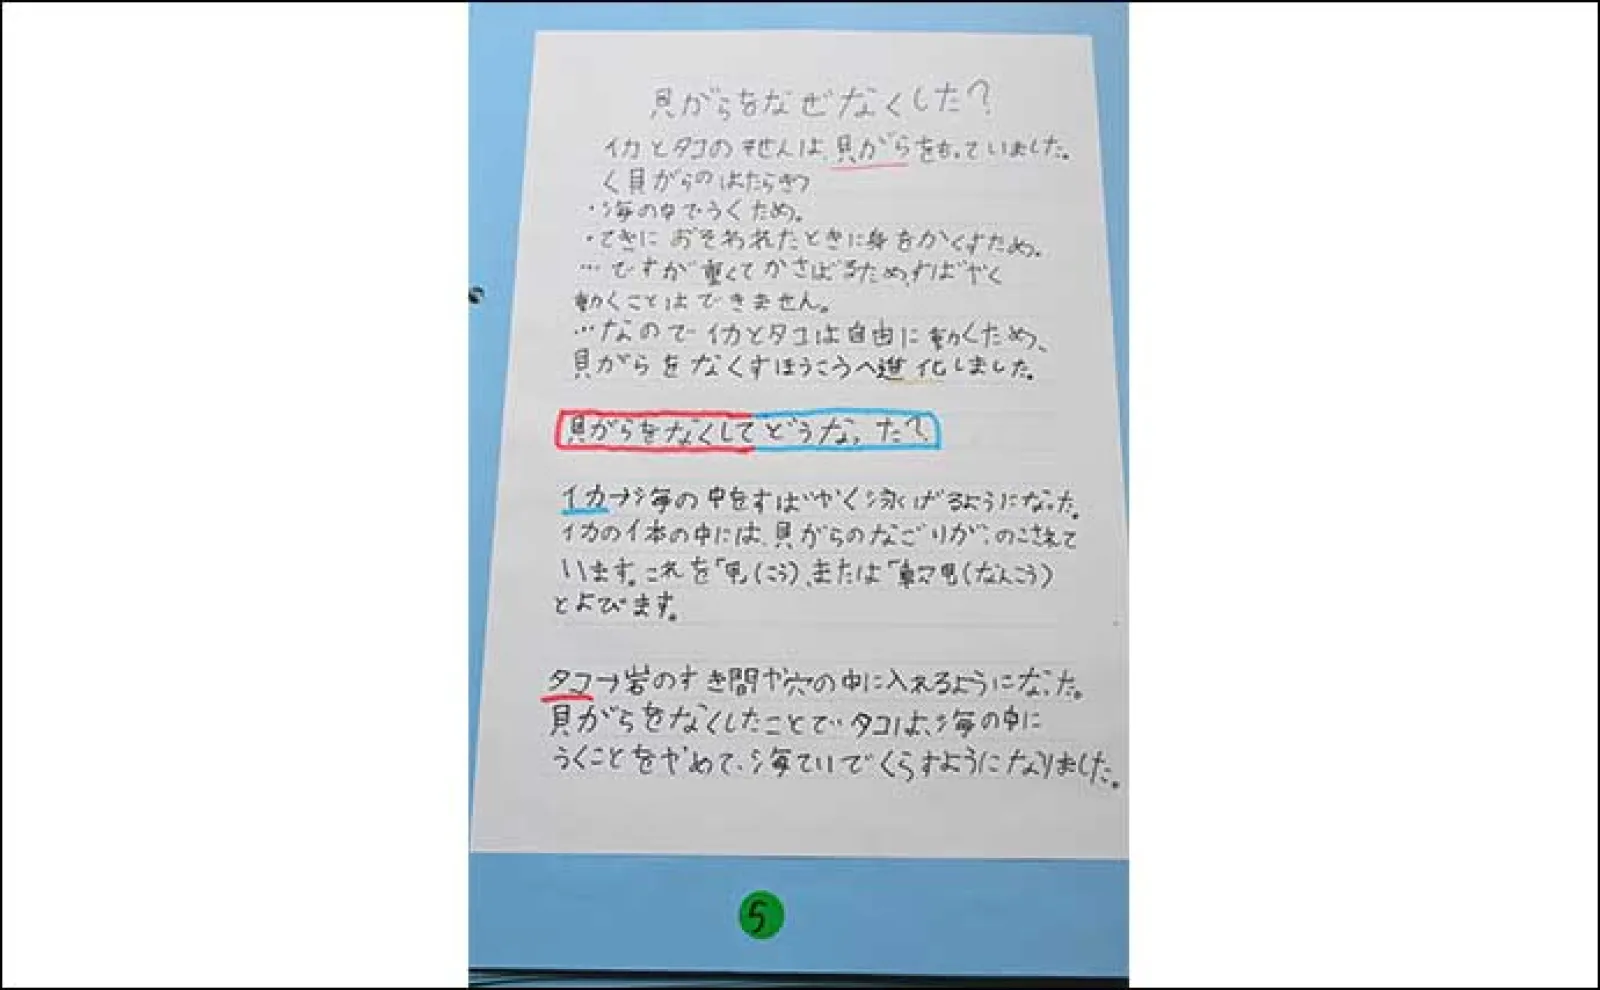 貝がらをなぜなくした?
イカとタコの先ぞは、貝がらをもっていました。
く貝がらのはたらき>
・海の中でうくため。
・てきにおそわれたときに身をかくすため。
…ですが重くてかさばるため、すばやく
動くことはできません。
…なのでイカとタコは自由に動くため、
貝がらをなくすほうこうへ進化しました。
貝がらをなくしてどうなった?
イカ→海の中をすばやく泳げるようになった。
イカの体の中には、貝がらのなごりが、のこされて
います。これを「甲(こう)、または「軟甲(なんこう)
とよびます。
タコ→岩のすき間や穴の中に入れるようになった。
貝がらをなくしたことでタコは、海の中に
うくことをやめて、海ていでくらすようになりました。
5